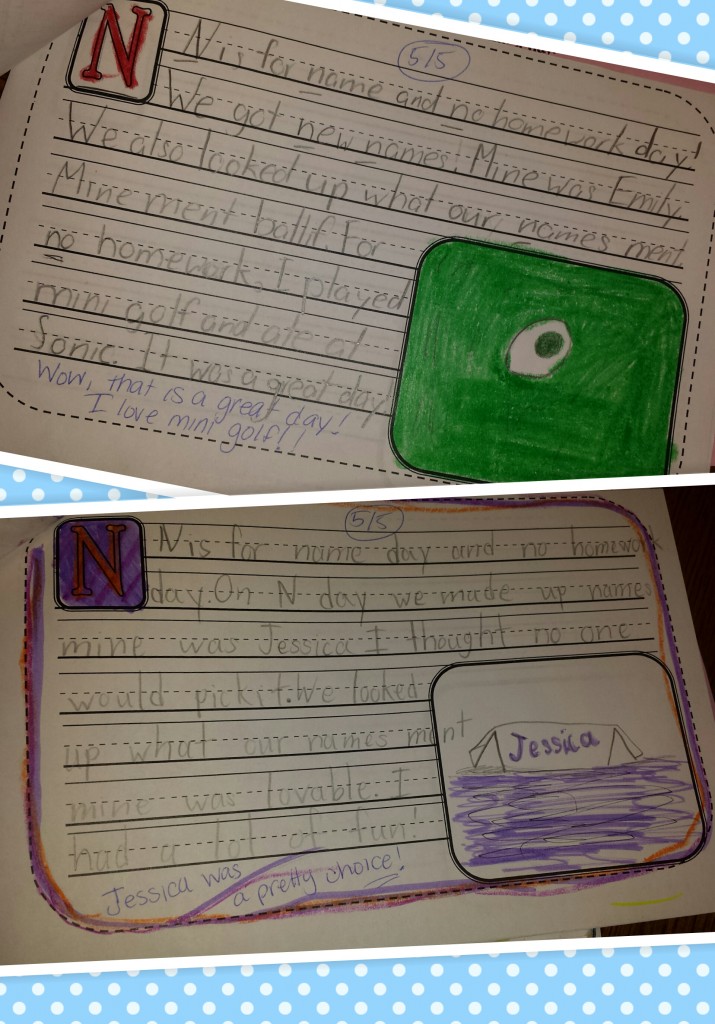 N
5/5
N is for name and no homework day!
We got new names. Mine was Emily.
We also looked up what our names ment.
Mine ment ballif. For
no homework, I played
mini golf and ate at
Sonic. It was a great day!
Wow, that is a great day!
I love mini golf!!
N
5/5
N is for name day and no homework
day. On N day we made up names
mine was Jessica I thought no one
would pick it. We looked
up what our names ment
mine was lovable. I
had a lot of fun!
Jessica
Jessica was
a pretty choice!